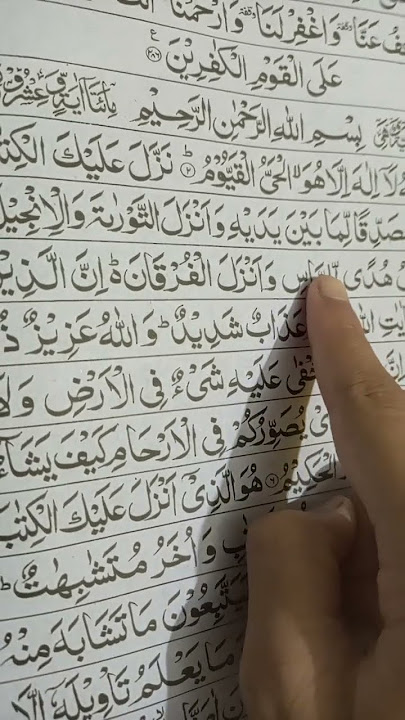 عَنَّا وَاغْفِرْ لَنَا وَارْحَمْنَا
عَلَى الْقَوْمِ الْكٰفِرِيْنَ ۝۲۸۶
بِسْمِ اللهِ الرَّحْمٰنِ الرَّحِيْمِ
لَاۤ اِلٰهَ اِلَّا هُوَ ۙ الْحَيُّ الْقَيُّوْمُ ؕ۝۲ نَزَّلَ عَلَيْكَ
مُصَدِّقًا لِّمَا بَيْنَ يَدَيْهِ وَاَنْزَلَ التَّوْرٰىةَ وَالْاِنْجِيْلَ
هُدًى وَاَنْزَلَ الْفُرْقَانَ ؕ اِنَّ الَّذِيْنَ
عَذَابٌ شَدِيْدٌ ؕ وَاللهُ عَزِيْزٌ
عَلَيْهِ شَيْءٌ فِي الْاَرْضِ وَلَا
يُصَوِّرُكُمْ فِي الْاَرْحَامِ كَيْفَ يَشَآءُ
الْحَكِيْمُ ۝۶ هُوَ الَّذِيْۤ اَنْزَلَ عَلَيْكَ الْكِتٰبَ
وَاُخَرُ مُتَشٰبِهٰتٌ ؕ
مَا تَشَابَهَ مِنْهُ
مَا يَعْلَمُ تَاْوِيْلَهٗۤ اِلَّا